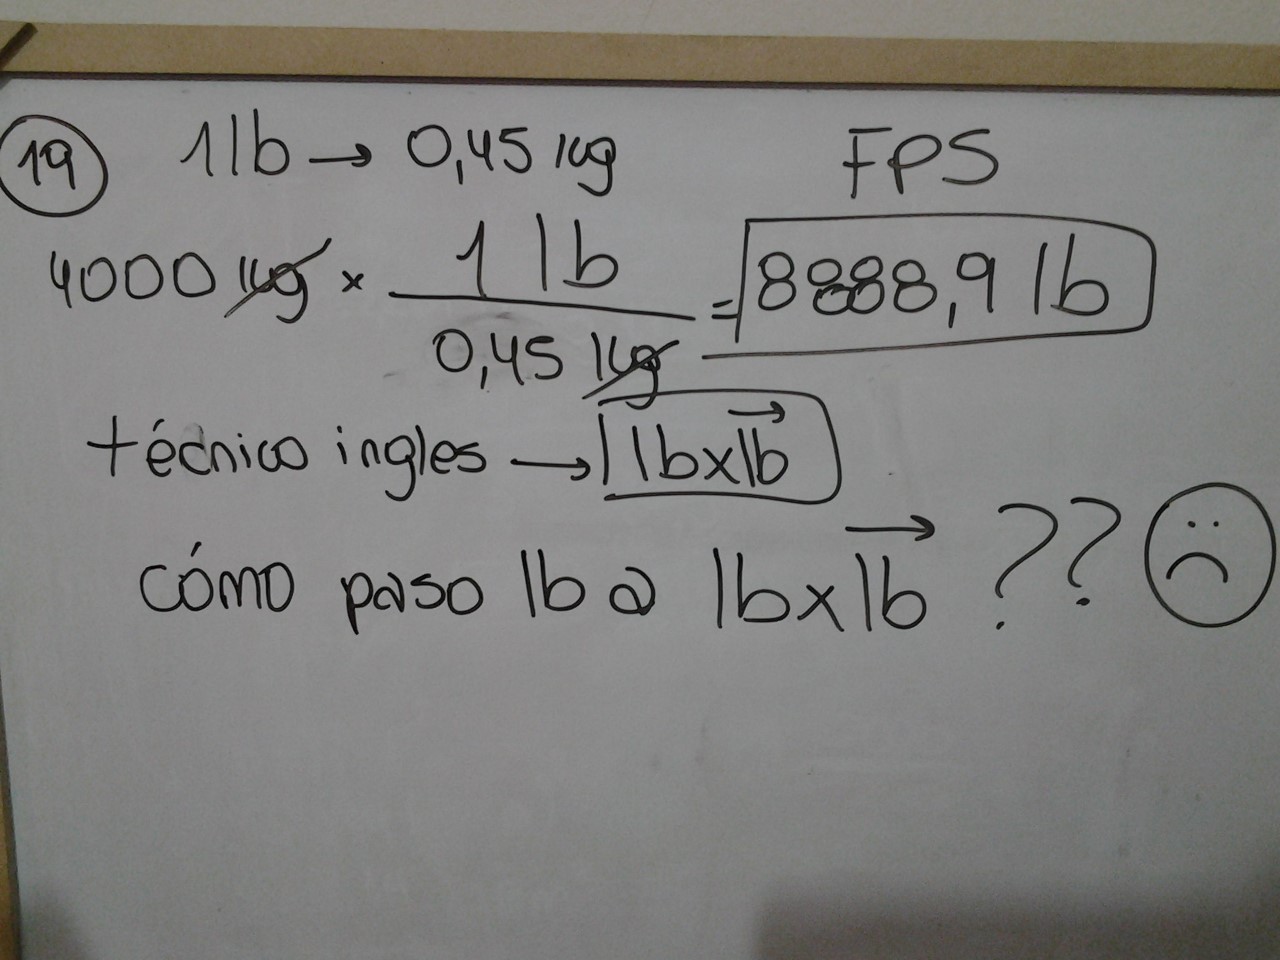 19 1 lb → 0,45 kg FPS
4000 kg × 1 lb / 0,45 kg = 8888,9 lb
técnico ingles → lbxlb
cómo paso lb a lbxlb ??